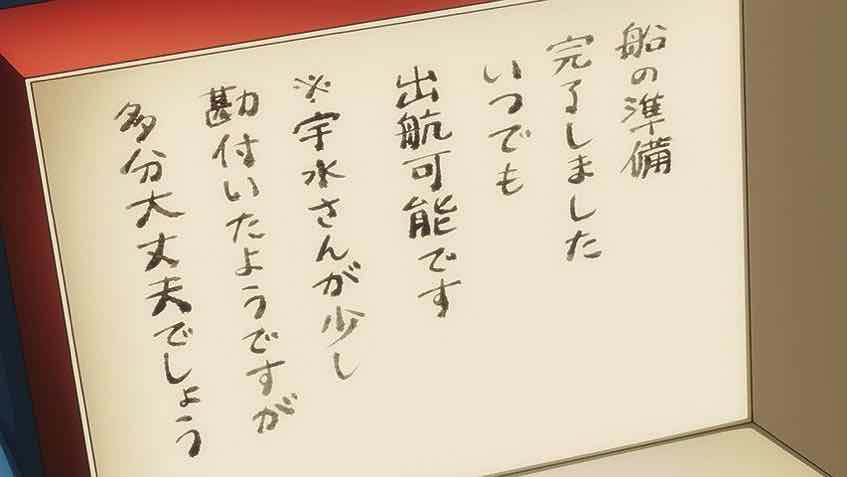 船の準備
完了しました
いつでも
出航可能です
※宇水さんが少し
勘付いたようですが
多分大丈夫でしょう